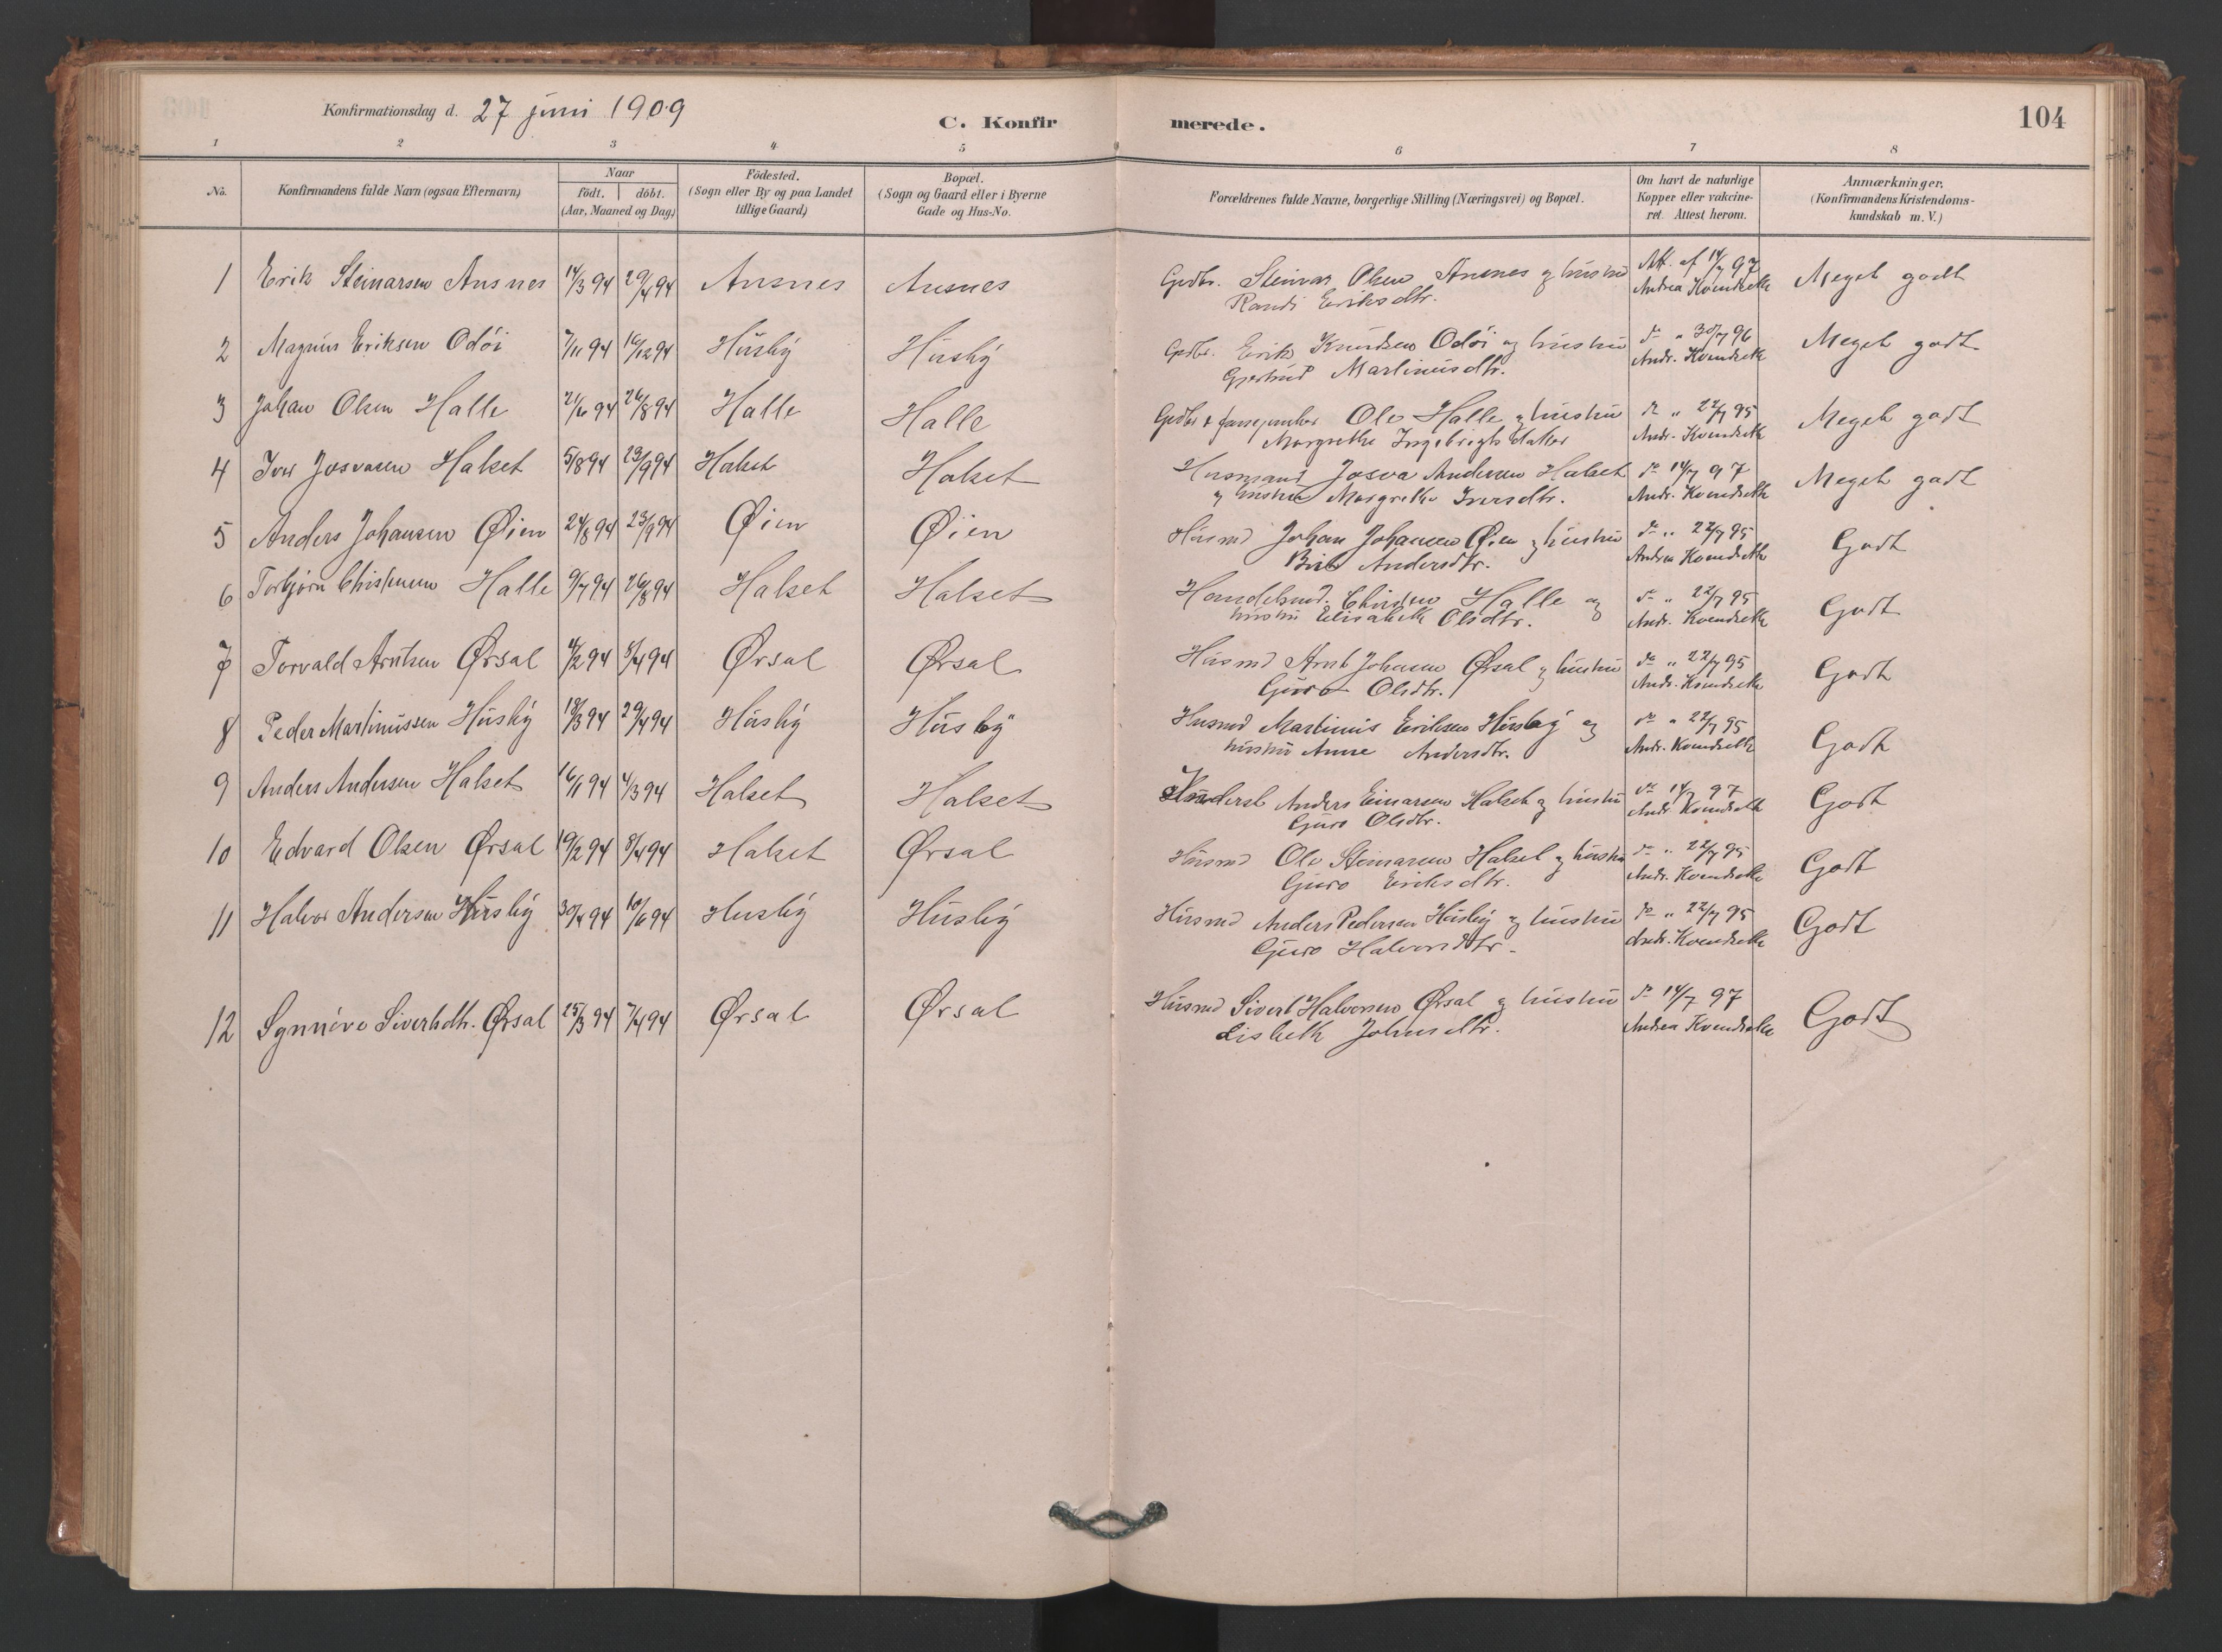 Konfirmationsdag d. 27 juni 1909
C. Konfirmerede.
104
1 2 3 4 5 6 7 8
No. Konfirmandens fulde Navn (ogsaa Efternavn) Naar födt. döbt. (Aar, Maaned og Dag.) Födested. (Sogn eller By og paa Landet tillige Gaard) Bopæl. (Sogn og Gaard eller i Byerne Gade og Hus-No. Forældrenes fulde Navne, borgerlige Stilling (Næringsvei) og Bopæl. Om havt de naturlige Kopper eller vakcineret. Attest herom. Anmærkninger. (Konfirmandens Kristendomskundskab m. V.)
1 Erik Steinarsen Ausnes 14/3 94 29/4 94 Ausnes Ausnes Grdbr. Steinar Olsen Ausnes og hustru Att. af 14/7 97 Meget godt
Randi Eriksdtr. Andrea Kvendseth
2 Magnus Eriksen Odöi 7/11 94 16/12 94 Husby Husby Grdbr. Erik Knudsen Odöi og hustru do " 30/7 96 Meget godt
Gjertrud Martinusdtr. Andr. Kvendseth
3 Johan Olsen Halle 21/6 94 26/8 94 Halle Halle Grdbr & Ole Halle og hustru do " 22/7 95 Meget godt
Margrethe Ingebrigtsdatter Andr. Kvendseth
4 Iver Josvasen Halset 5/8 94 23/9 94 Halset Halset Husmand Josva Andersen Halset do 14/7 97 Meget godt
og hustru Margrethe Iversdtr. Andr. Kvendseth
5 Anders Johansen Øien 24/8 94 23/9 94 Øien Øien Husmd Johan Johansen Øien og hustru do " 22/7 95 Godt
Andersdtr. Andrea Kvendseth
6 Torbjörn Christensen Halle 9/7 94 26/8 94 Halset Halset Handelsmd. Christen Halle og do " 22/7 95 Godt
hustru Elisabeth Olsdtr. Andr. Kvendseth
7 Torvald Arntsen Ørsal 4/2 94 8/4 94 Ørsal Ørsal Husmd Arnt Johnsen Ørsal og hustru do " 22/7 95 Godt
Guro Olsdtr. Andr. Kvendseth
8 Peder Martinussen Husby 18/3 94 29/4 94 Husby Husby Husmd Martinus Eriksen Husby og do " 22/7 95 Godt
hustru Anne Andersdtr. Andr. Kvendseth
9 Anders Andersen Halset 16/1 94 4/3 94 Halset Halset Anders Einarsen Halset og hustru do 14/7 97 Godt
Guro Olsdtr. Andr. Kvendseth
10 Edvard Olsen Ørsal 19/2 94 8/4 94 Halset Ørsal Husmd Ole Steinarsen Halset og hustru do " 22/7 95 Godt
Guro Eriksdtr. Andr. Kvendseth
11 Halvor Andersen Husby 30/4 94 10/6 94 Husby Husby Husmd Anders Pedersen Husby og hustru do " 22/7 95 Godt
Guro Halvorsdtr. Andr. Kvendseth
12 Synnöve Sivertsdtr. Ørsal 25/3 94 7/4 94 Ørsal Ørsal Husmd Sivert Halvorsen Ørsal og hustru do 14/7 97 Godt
Lisbeth Johnsdtr. Andrea Kvendseth